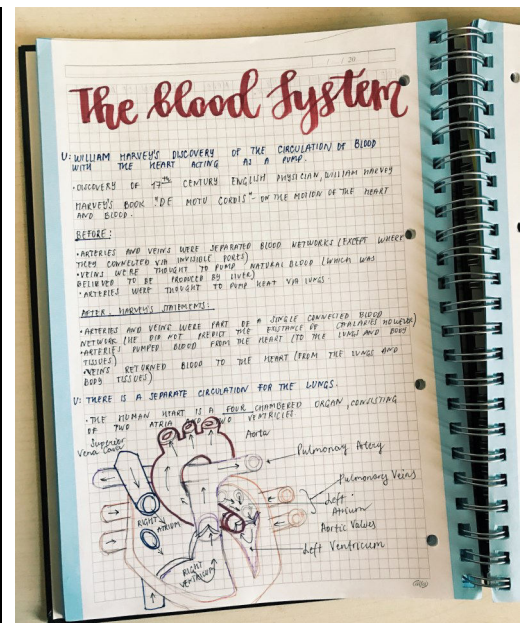 / / 20
The blood System
U: WILLIAM HARVEY'S DISCOVERY OF THE CIRCULATION OF BLOOD
WITH THE HEART ACTING AS A PUMP.
• DISCOVERY OF 17th CENTURY ENGLISH PHYSICIAN, WILLIAM HARVEY
HARVEY'S BOOK "DE MOTU CORDIS" - ON THE MOTION OF THE HEART
AND BLOOD.
BEFORE:
• ARTERIES AND VEINS WERE SEPARATED BLOOD NETWORKS (EXCEPT WHERE
THEY CONNECTED VIA INVISIBLE PORES)
• VEINS WERE THOUGHT TO PUMP NATURAL BLOOD (WHICH WAS
BELIEVED TO BE PRODUCED BY LIVER)
• ARTERIES WERE THOUGHT TO PUMP HEAT VIA LUNGS
AFTER HARVEY'S STATEMENTS:
• ARTERIES AND VEINS WERE PART OF A SINGLE CONNECTED BLOOD
NETWORK (HE DID NOT PREDICT THE EXISTANCE OF HOWEVER)
• ARTERIES PUMPED BLOOD FROM THE HEART (TO THE LUNGS AND BODY
TISSUES)
• VEINS RETURNED BLOOD TO THE HEART (FROM THE LUNGS AND
BODY TISSUES)
U: THERE IS A SEPARATE CIRCULATION FOR THE LUNGS.
• THE HUMAN HEART IS A FOUR CHAMBERED ORGAN, CONSISTING
OF TWO ATRIA AND TWO VENTRICLES
Superior
Vena Cava
Aorta
Pulmonary Artery
Pulmonary Veins
Left
Atrium
Aortic Valves
Left Ventricum
RIGHT
ATRIUM
RIGHT